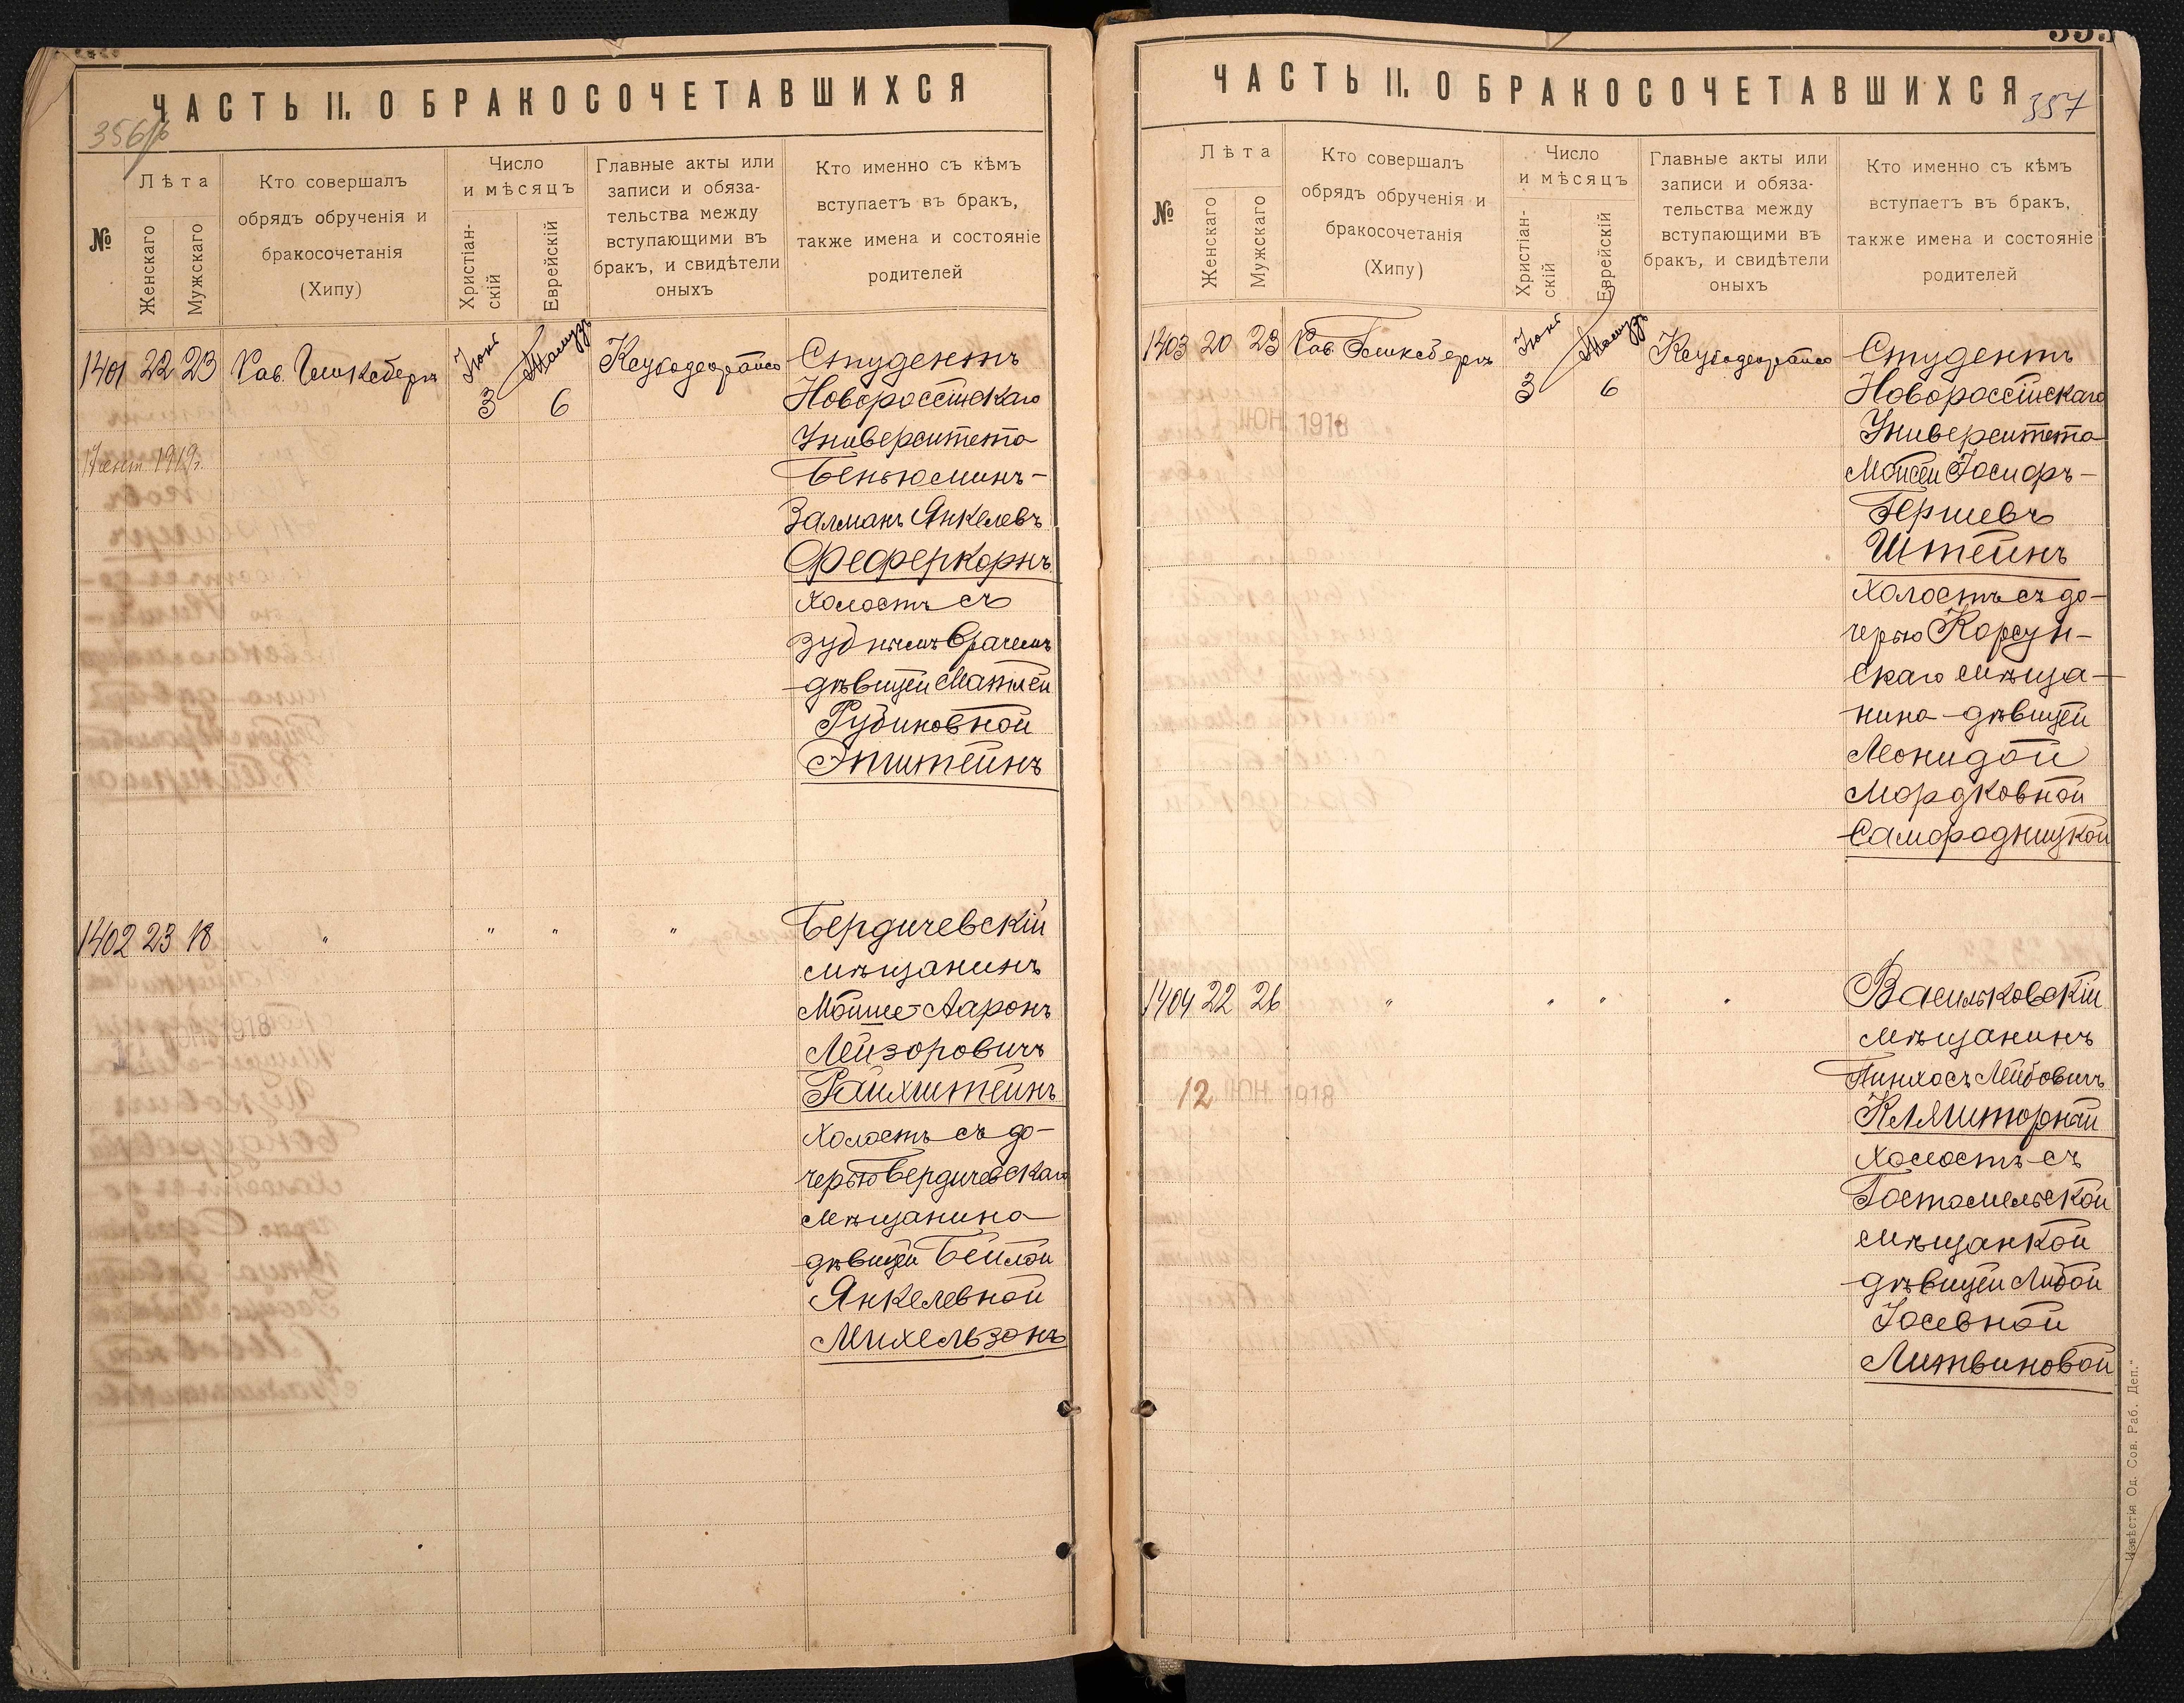 ЧАСТЬ II. О БРАКОСОЧЕТАВШИХСЯ
356
№
Лѣта
Женскаго
Мужскаго
Кто совершалъ
обрядъ обрученія и
бракосочетанія
(Хипу)
Число
и мѣсяцъ
Христіан-
скій
Еврейскій
Главные акты или
записи и обяза-
тельства между
вступающими въ
бракъ, и свидѣтели
оныхъ
Кто именно съ кѣмъ
вступаетъ въ бракъ,
также имена и состояніе
родителей
1401 22 23
Іюня
3
Тамузъ
6
1919г.
Студентъ
Новороссійскаго
Университета
Беньюминъ-
Залманъ Янкелевъ
Феферкорнъ
холостъ съ
зубнымъ врачемъ
дѣвицей Матлей
Рубиновной
Эпштейнъ
1402 23 18 " " " "
Бердичевскій
мѣщанинъ
Мойше-Ааронъ
Лейзоровичъ
Райхштейнъ
холостъ съ до-
черью Бердичевскаго
мѣщанина
дѣвицей Бейлой
Янкелевной
Михельзонъ
1918
ЧАСТЬ II. О БРАКОСОЧЕТАВШИХСЯ
357
№
Лѣта
Женскаго
Мужскаго
Кто совершалъ
обрядъ обрученія и
бракосочетанія
(Хипу)
Число
и мѣсяцъ
Христіан-
скій
Еврейскій
Главные акты или
записи и обяза-
тельства между
вступающими въ
бракъ, и свидѣтели
оныхъ
Кто именно съ кѣмъ
вступаетъ въ бракъ,
также имена и состояніе
родителей
1403 20 23
Іюня
3
Тамузъ
6
ІЮН. 1918
Студентъ
Новороссійскаго
Университета
Мойсей Іосифъ-
Гершевъ
Штейнъ
холостъ съ до-
черью Корсун-
скаго мѣща-
нина дѣвицей
Леонидой
Мордковной
Самородницкой
1404 22 26 " " " "
12 ІЮН. 1918
Васильковскій
мѣщанинъ
Пинхосъ Лейбовичъ
Кляшторный
холостъ съ
Гостомельской
мѣщанкой
дѣвицей Любой
Іосевной
Литвиновой
Извѣстія Од. Сов. Раб. Деп."